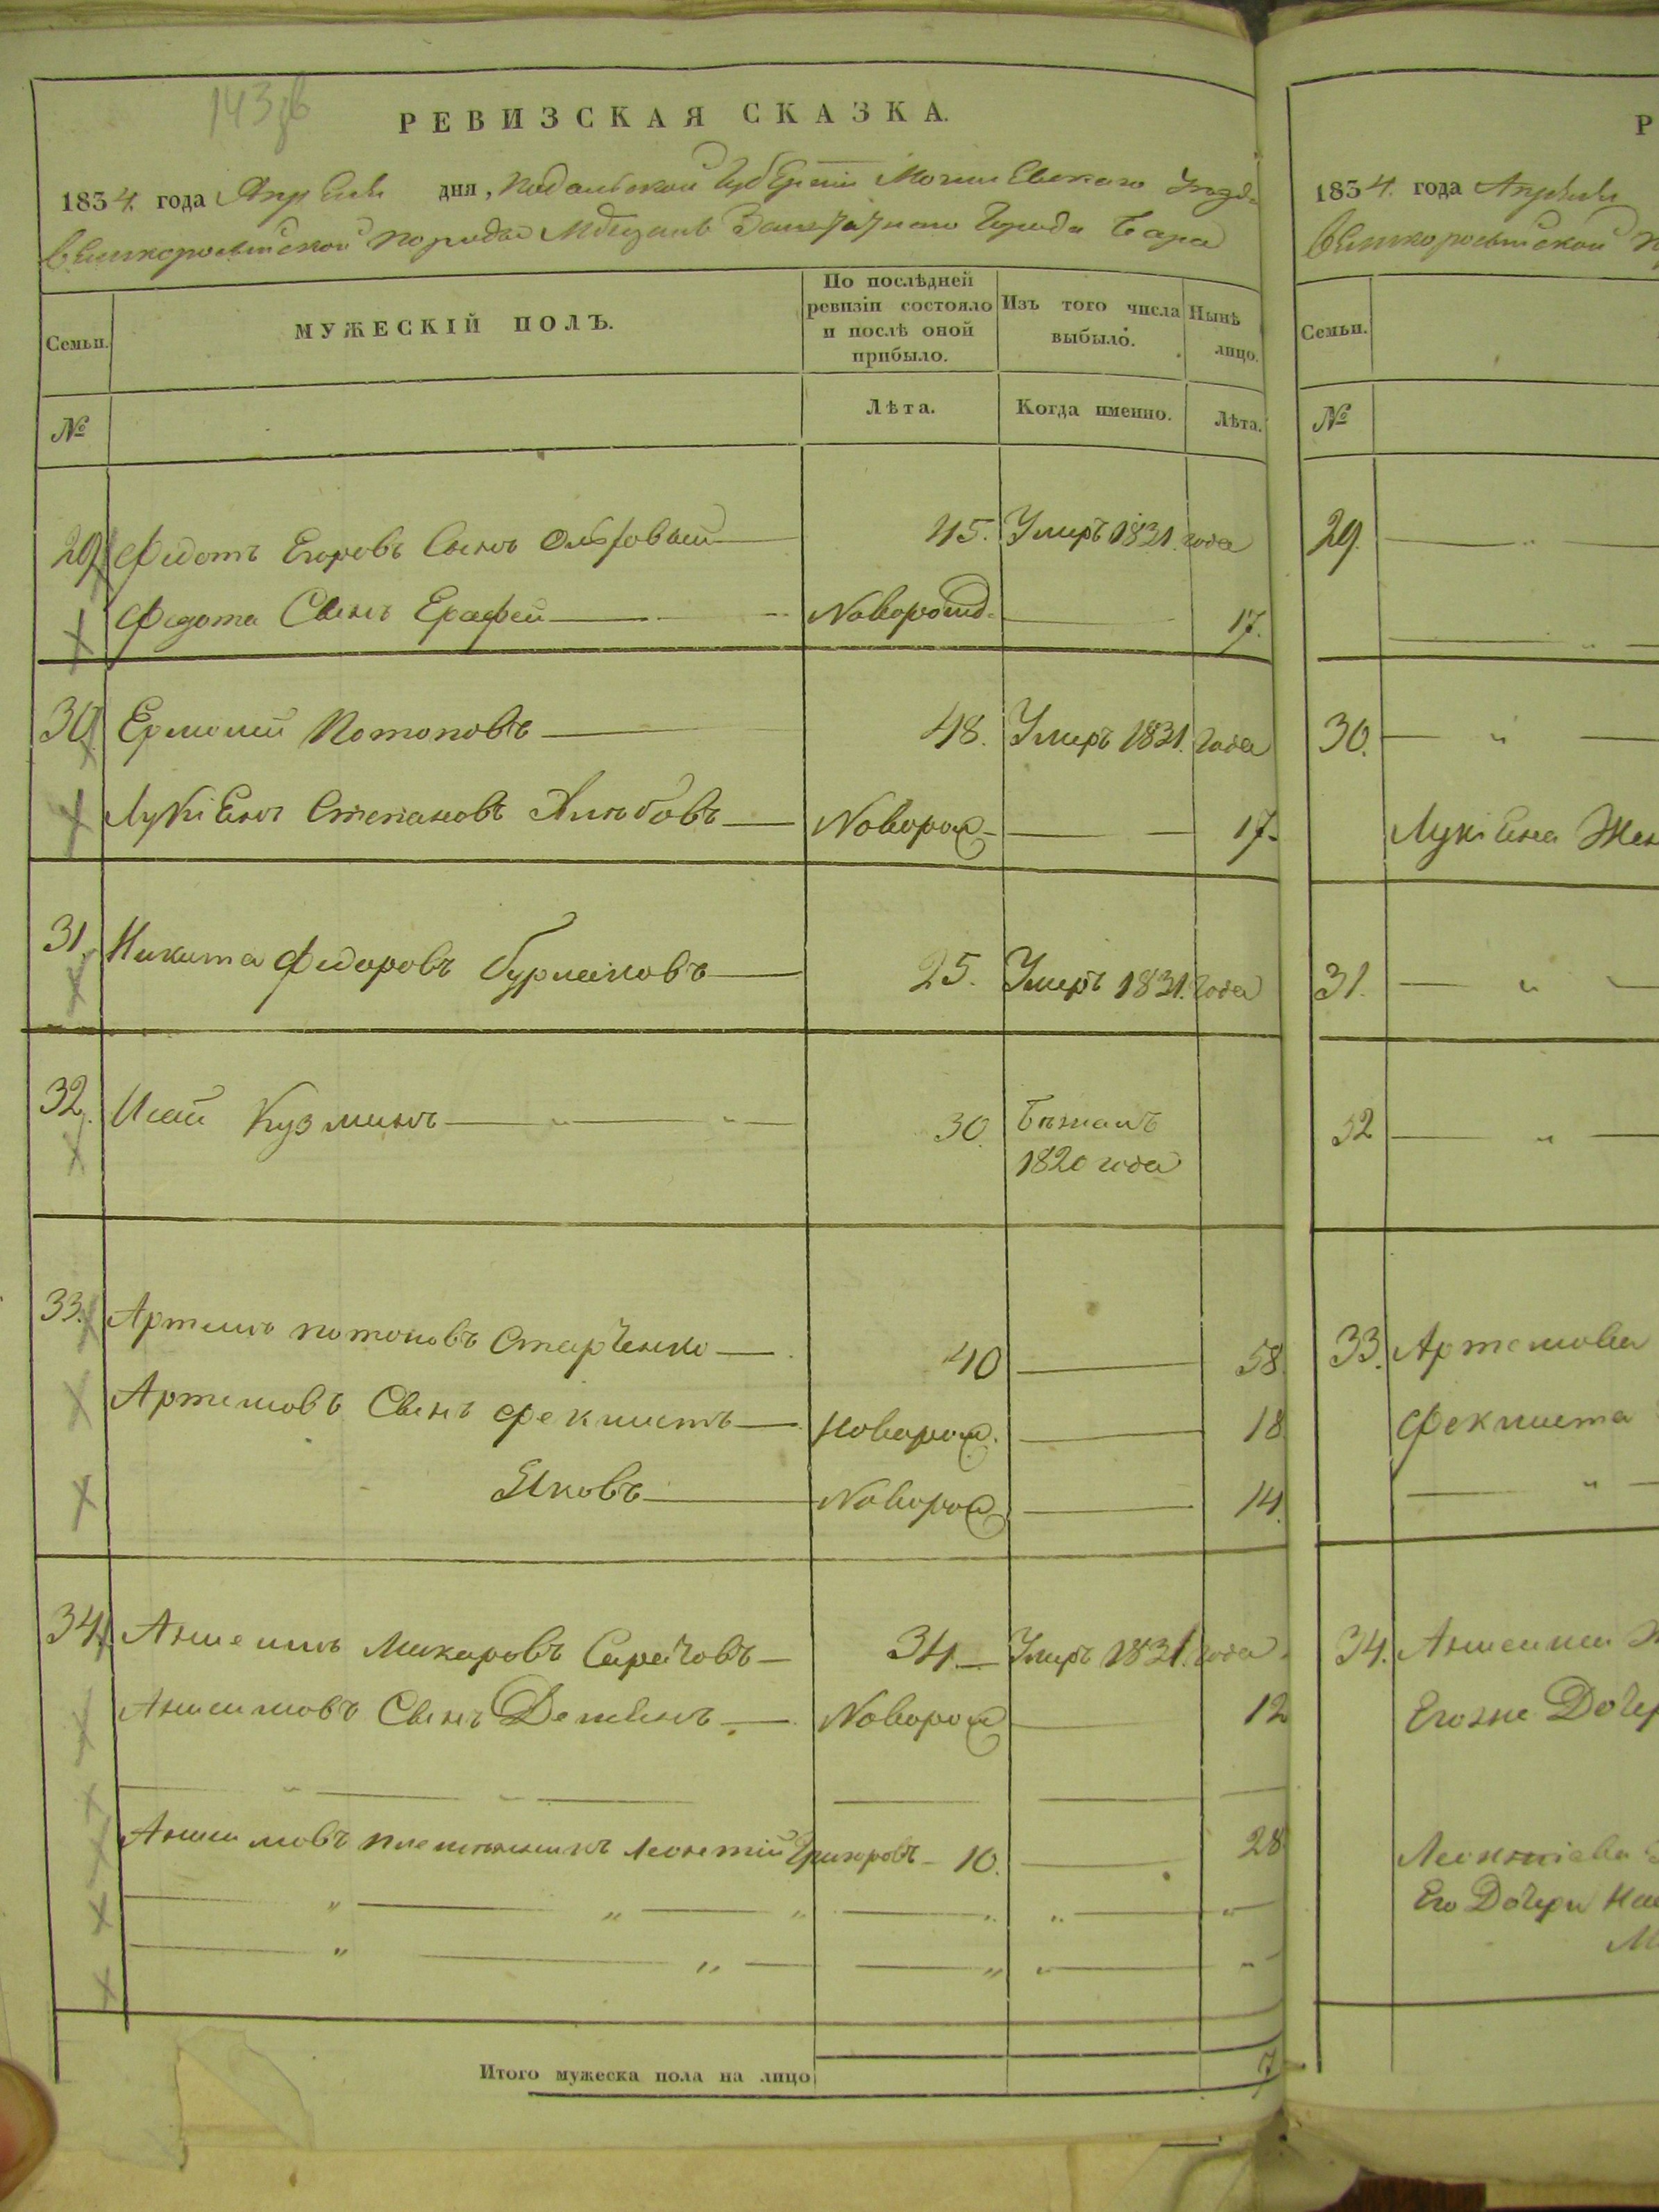 143 об
РЕВИЗСКАЯ СКАЗКА.
1834. года Апреля дня, Подольской Губернии Могилевского Уезда
Великоросийской породы Мещанъ Заштатного Города Бара
Семьи.
МУЖЕСКІЙ ПОЛЪ.
По послѣдней ревизіи состояло и послѣ оной прибыло.
Изъ того числа выбыло.
Нынѣ лицо.
№
Лѣта.
Когда именно.
Лѣта.
29 Федотъ Егоровъ Сынъ 45. Умеръ 1831. года
Федота Сынъ Ерафей Новорожд. 17.
30 Ермолий Потаповъ 48. Умеръ 1831. года
Лукіенъ Степановъ Новорож 17.
31. Никита Федоровъ Бурлаковъ 25. Умеръ 1831. года
32. Исай Кузминъ 30. Бежалъ
1820 года
33. Артемъ Потаповъ Старченко 40 58.
Артемовъ Сынъ Фекмистъ Новорож. 18
Яковъ Новорож 14.
34. Анисимъ Макаровъ 34. Умеръ 1831. года
Анисимовъ Сынъ Демянъ Новорож 12
Анисимовъ племянникъ Леонтій Григоровъ 10. 28
Итого мужеска пола на лицо 7
Р
1834. года Апреля
Великоросийской
Семьи.
№
29.
30.
Лукіена Жен
31.
32
33. Артемова
Фекмиста
34. Анисима Ж
Егоже Дочер
Леонтіева
Его Дочери